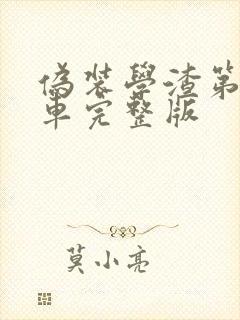 偽裝學渣第
車完整版
莫小亮